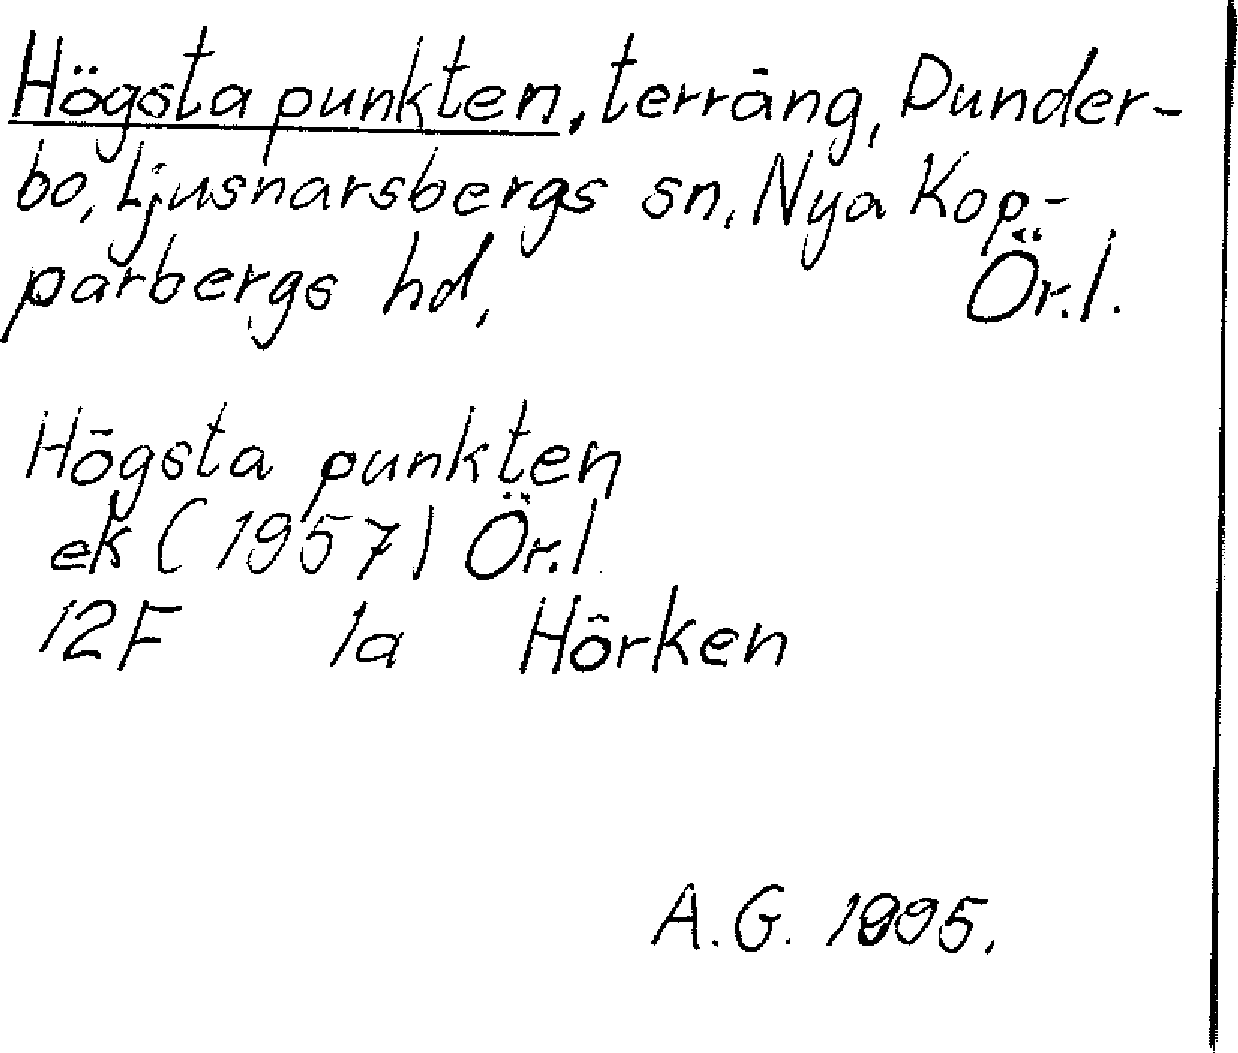 Högsta punkten, terräng, Dunder-
bo, Ljusnarsbergs sn, Nya Kop-
parbergs hd, Ör.l.
Högsta punkten
ek (1957) Ör.l.
12F 1a Hörken
A.G. 1995.